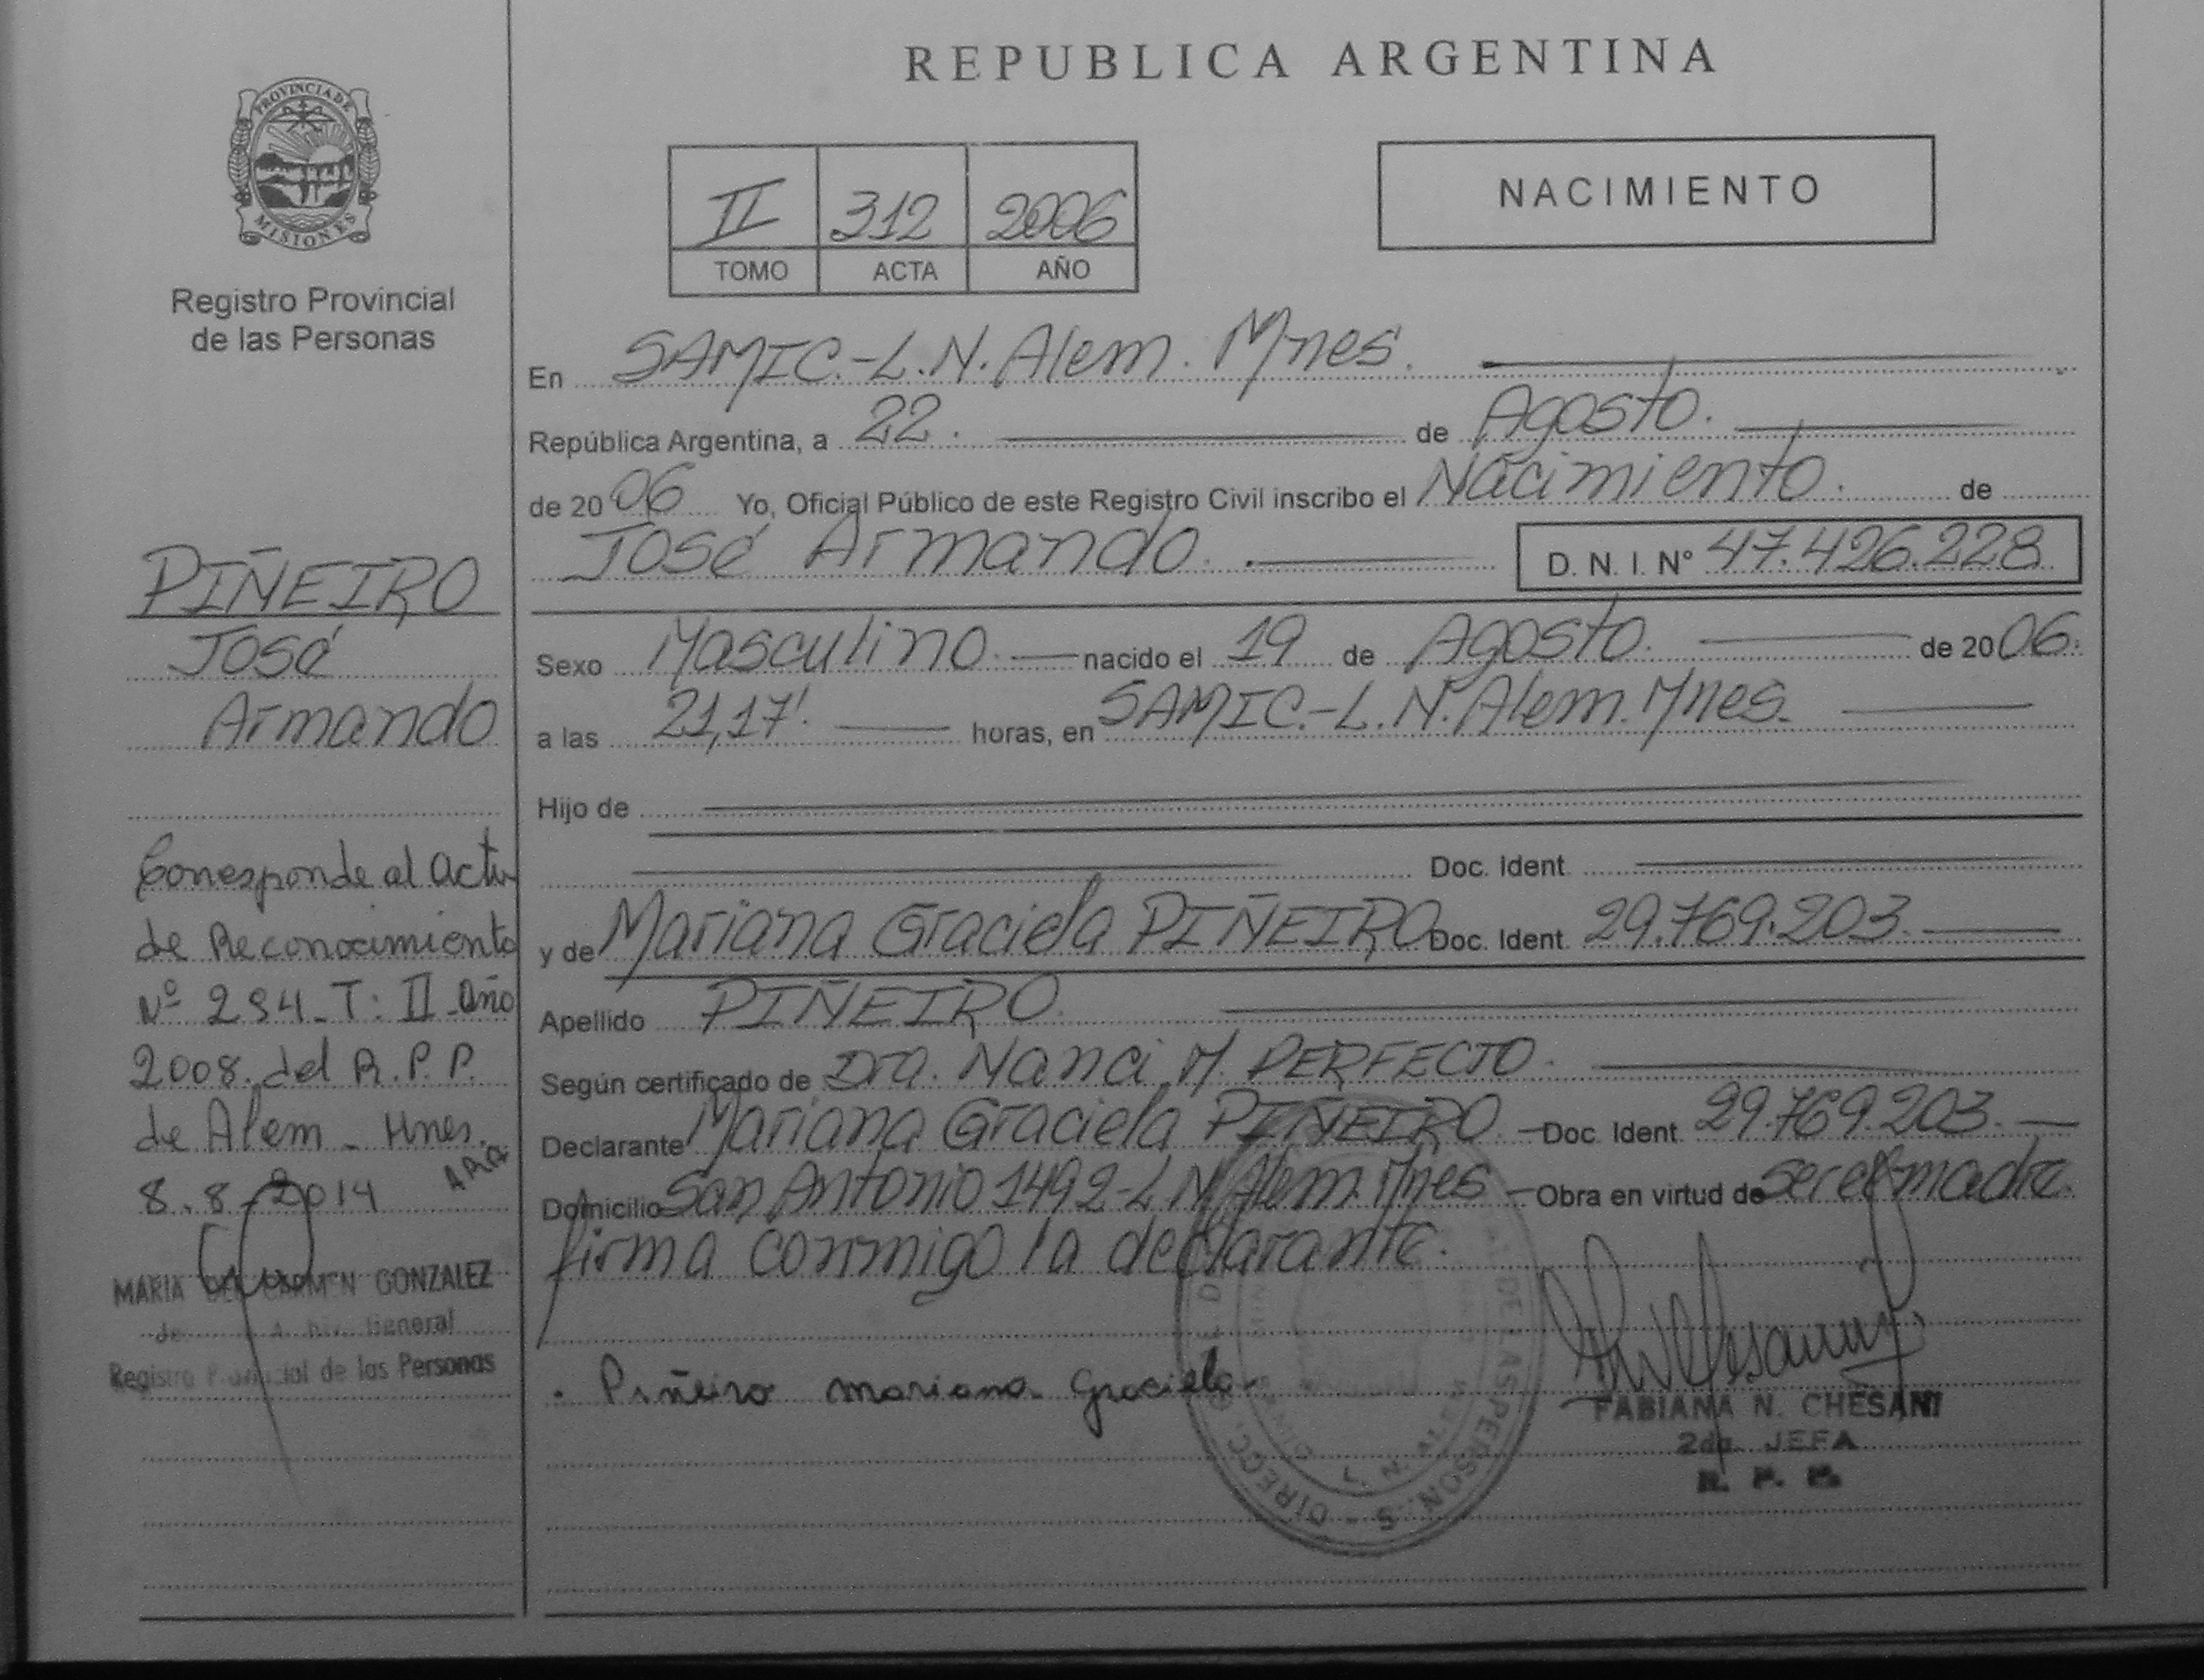 REPUBLICA ARGENTINA
PROVINCIA DE
MISIONES
Registro Provincial
de las Personas
II 312 2006
TOMO ACTA AÑO
NACIMIENTO
En SAMIC.-L.N.Alem. Mnes.
República Argentina, a 22. de Agosto.
de 2006 Yo, Oficial Público de este Registro Civil inscribo el Nacimiento. de
José Armando. D. N. I. Nº 47.426.228
Sexo Masculino. nacido el 19 de Agosto. de 2006.
a las 21,17'. horas, en SAMIC.-L.N.Alem.Mnes.
Hijo de
Doc. Ident.
y de Mariana Graciela PIÑEIRO Doc. Ident. 29.769.203.
Apellido PIÑEIRO.
Según certificado de Dra. Nanci M. PERFECTO.
Declarante Mariana Graciela PIÑEIRO. Doc. Ident. 29.769.203.
Domicilio San Antonio 1492-L.N.Alem.Mnes Obra en virtud de ser el madre.
firma conmigo la declarante.
. Piñeiro mariana Graciela
FABIANA N. CHESANI
2da. JEFA
R. P. P.
PIÑEIRO
José
Armando
Corresponde al Acta
de Reconocimiento
Nº 234_T: II_año
2008. del R.P.P.
de Alem _ Mnes.
8.8.2014
MARIA DEL CARMEN GONZALEZ
General
Registro Provincial de las Personas
L. N. ALEM